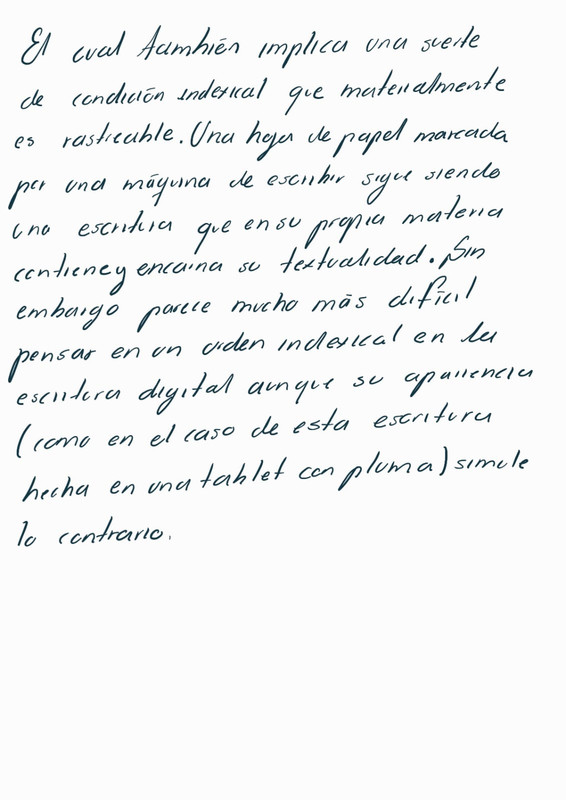 El cual también implica una suerte
de condición indexical que materialmente
es rastreable. Una hoja de papel marcada
por una máquina de escribir sigue siendo
una escritura que en su propia materia
contiene y encarna su textualidad. Sin
embargo parece mucho más difícil
pensar en un orden indexical en la
escritura digital aunque su apariencia
(como en el caso de esta escritura
hecha en una tablet con pluma) simule
lo contrario.